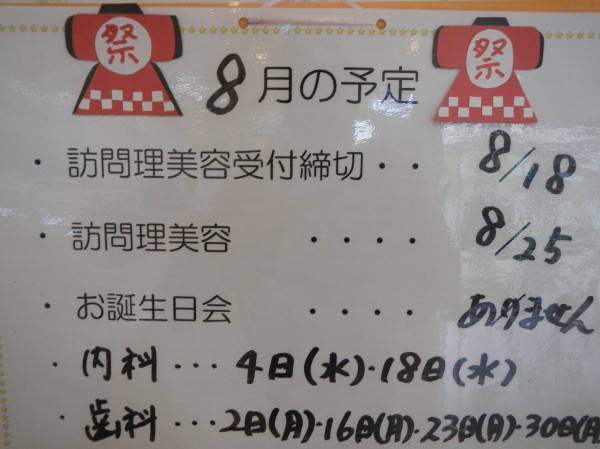 祭 祭
8月の予定
・訪問理美容受付締切・・8/18
・訪問理美容 ・・・・8/25
・お誕生日会 ・・・・ありません
・内科・・・4日(水)・18日(水)
・歯科・・・2日(月)・16日(月)・23日(月)・30日(月